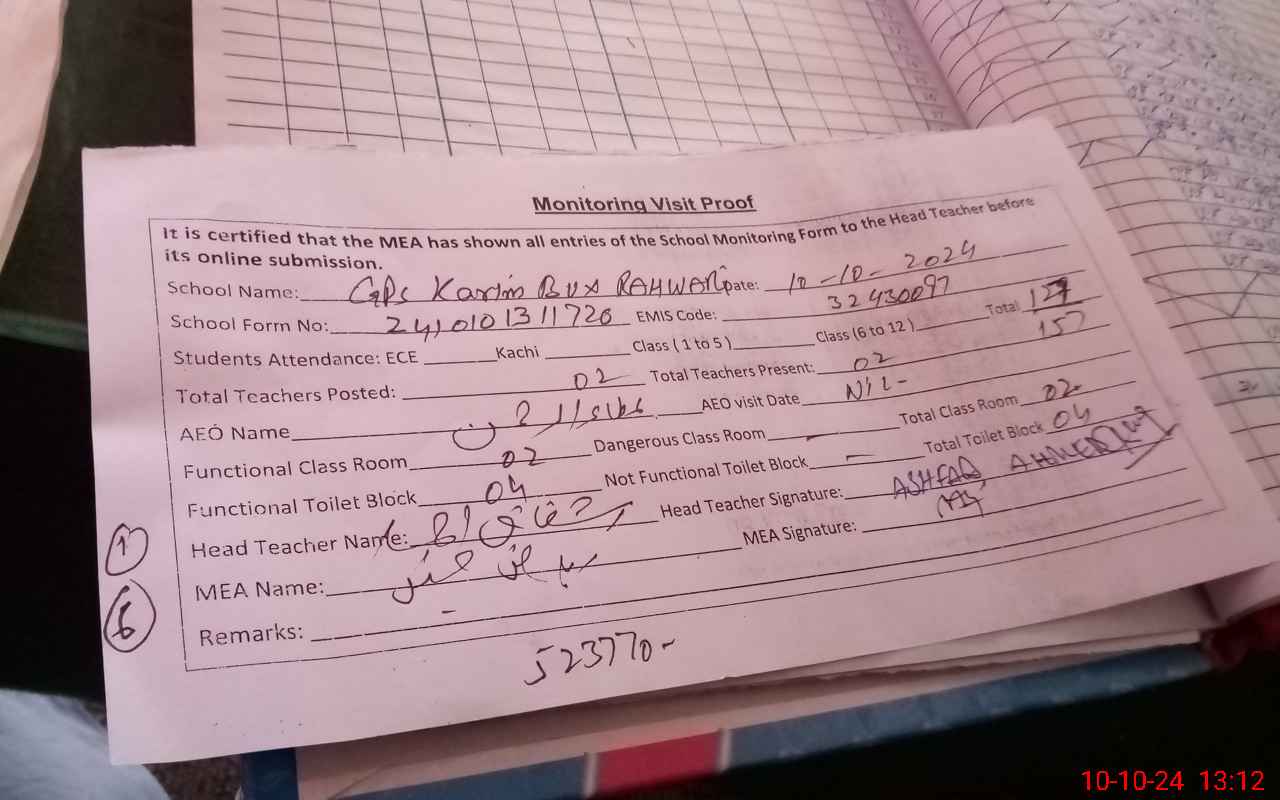 Monitoring Visit Proof
It is certified that the MEA has shown all entries of the School Monitoring Form to the Head Teacher before
its online submission.
School Name: GPS Karim BUX RAHWARI Date: 10-10-2024
School Form No: 2410101311726 EMIS Code: 32430097
Students Attendance: ECE Kachi Class ( 1 to 5 ) Class (6 to 12 ) Total 127
157
Total Teachers Posted: 02 Total Teachers Present: 02
AEO Name AEO visit Date NIL-
Functional Class Room 02 Dangerous Class Room - Total Class Room 02
Functional Toilet Block 04 Not Functional Toilet Block - Total Toilet Block 04
Head Teacher Name: Head Teacher Signature: ASHFAQ AHMED
MEA Name: MEA Signature:
Remarks: -
1
6
523770-
10-10-24 13:12